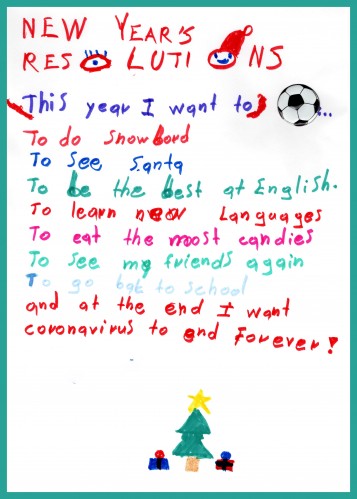 NEW YEAR'S
RESOLUTIONS
This year I want to ...
To do snowbord
To see Santa
To be the best at English.
To learn new Languages
To eat the most candies
To see my friends again
To go bak to school
and at the end I want
coronavirus to end Forever!